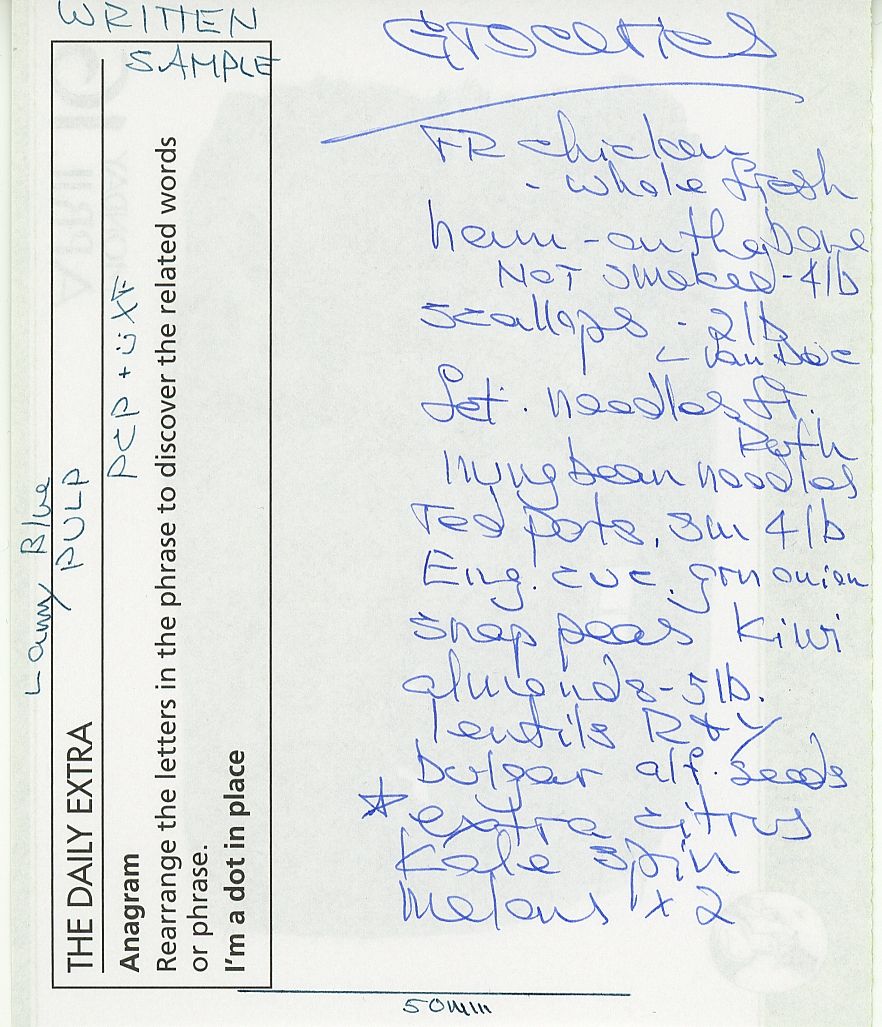 WRITTEN
SAMPLE
Groceries
FR chicken
- whole fresh
ham - on the bone
NOT smoked - 4lb
scallops - 2lb
fet. noodles ft.
mung bean noodles
red pots, sm 4lb
Eng. cuc. grn onion
snap peas Kiwi
almonds - 5lb.
lentils R & Y
bulgar alf. seeds
☆ extra citrus
Kale spin
Melons x 2
50mm
Lamy Blue
PULP
THE DAILY EXTRA
Anagram
Rearrange the letters in the phrase to discover the related words
or phrase.
I'm a dot in place